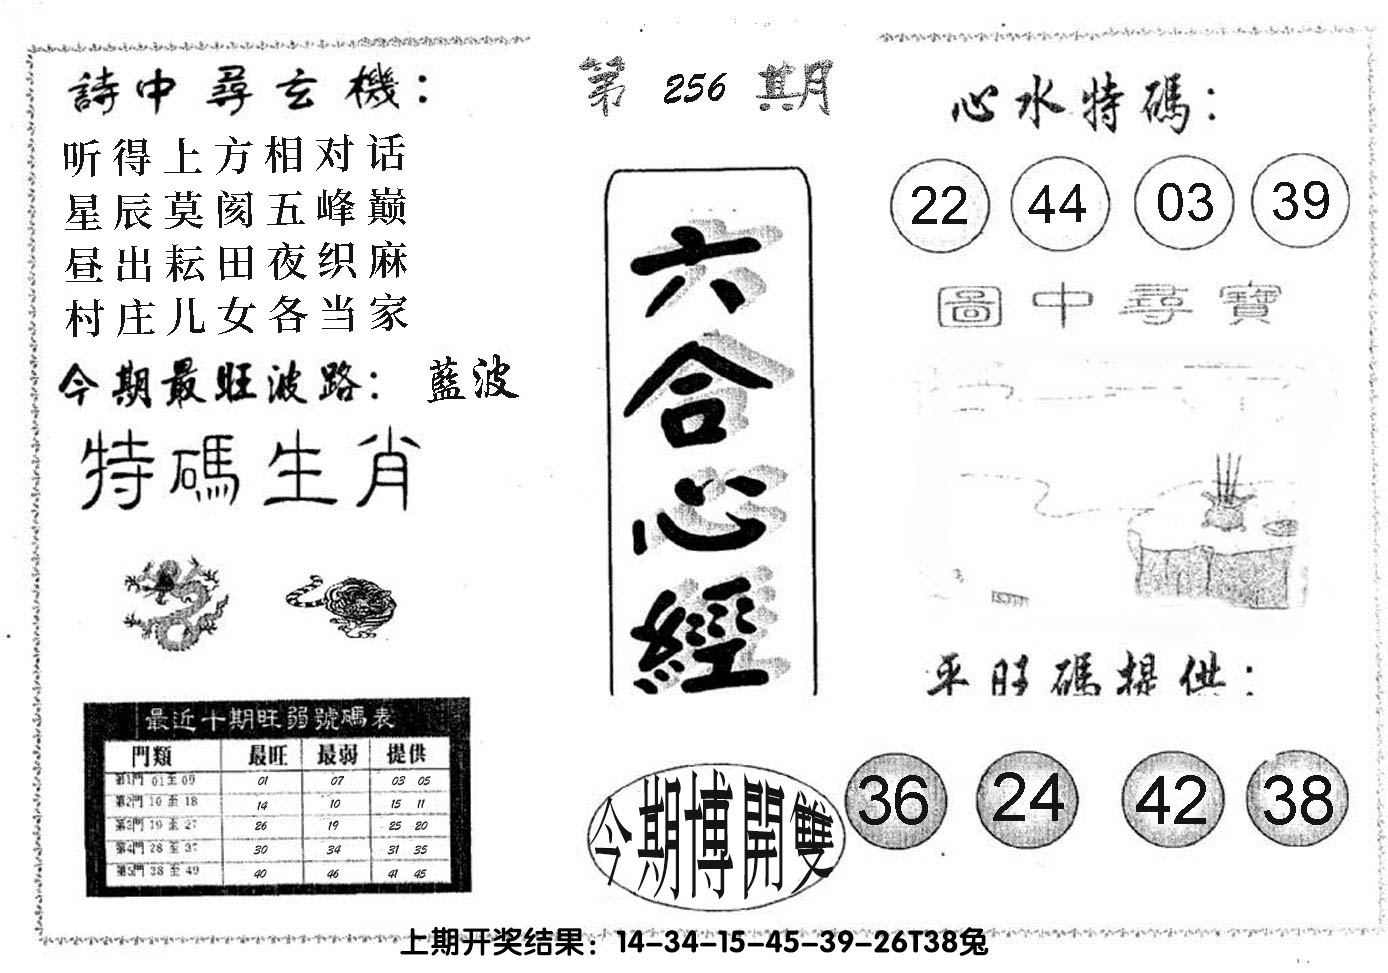 詩中尋玄機：
听得上方相对话
星辰莫阂五峰巅
昼出耘田夜织麻
村庄儿女各当家
今期最旺波路： 藍波
特碼生肖
最近十期旺弱號碼表
門類 最旺 最弱 提供
第1門 01至09 01 07 03 05
第2門 10至18 14 10 15 11
第3門 19至27 26 19 25 20
第4門 28至37 30 34 31 35
第5門 38至49 40 46 41 45
第 256 期
六合心經
今期博開雙
心水特碼：
22 44 03 39
圖中尋寶
平旺碼提供：
36 24 42 38
上期开奖结果：14-34-15-45-39-26T38兔